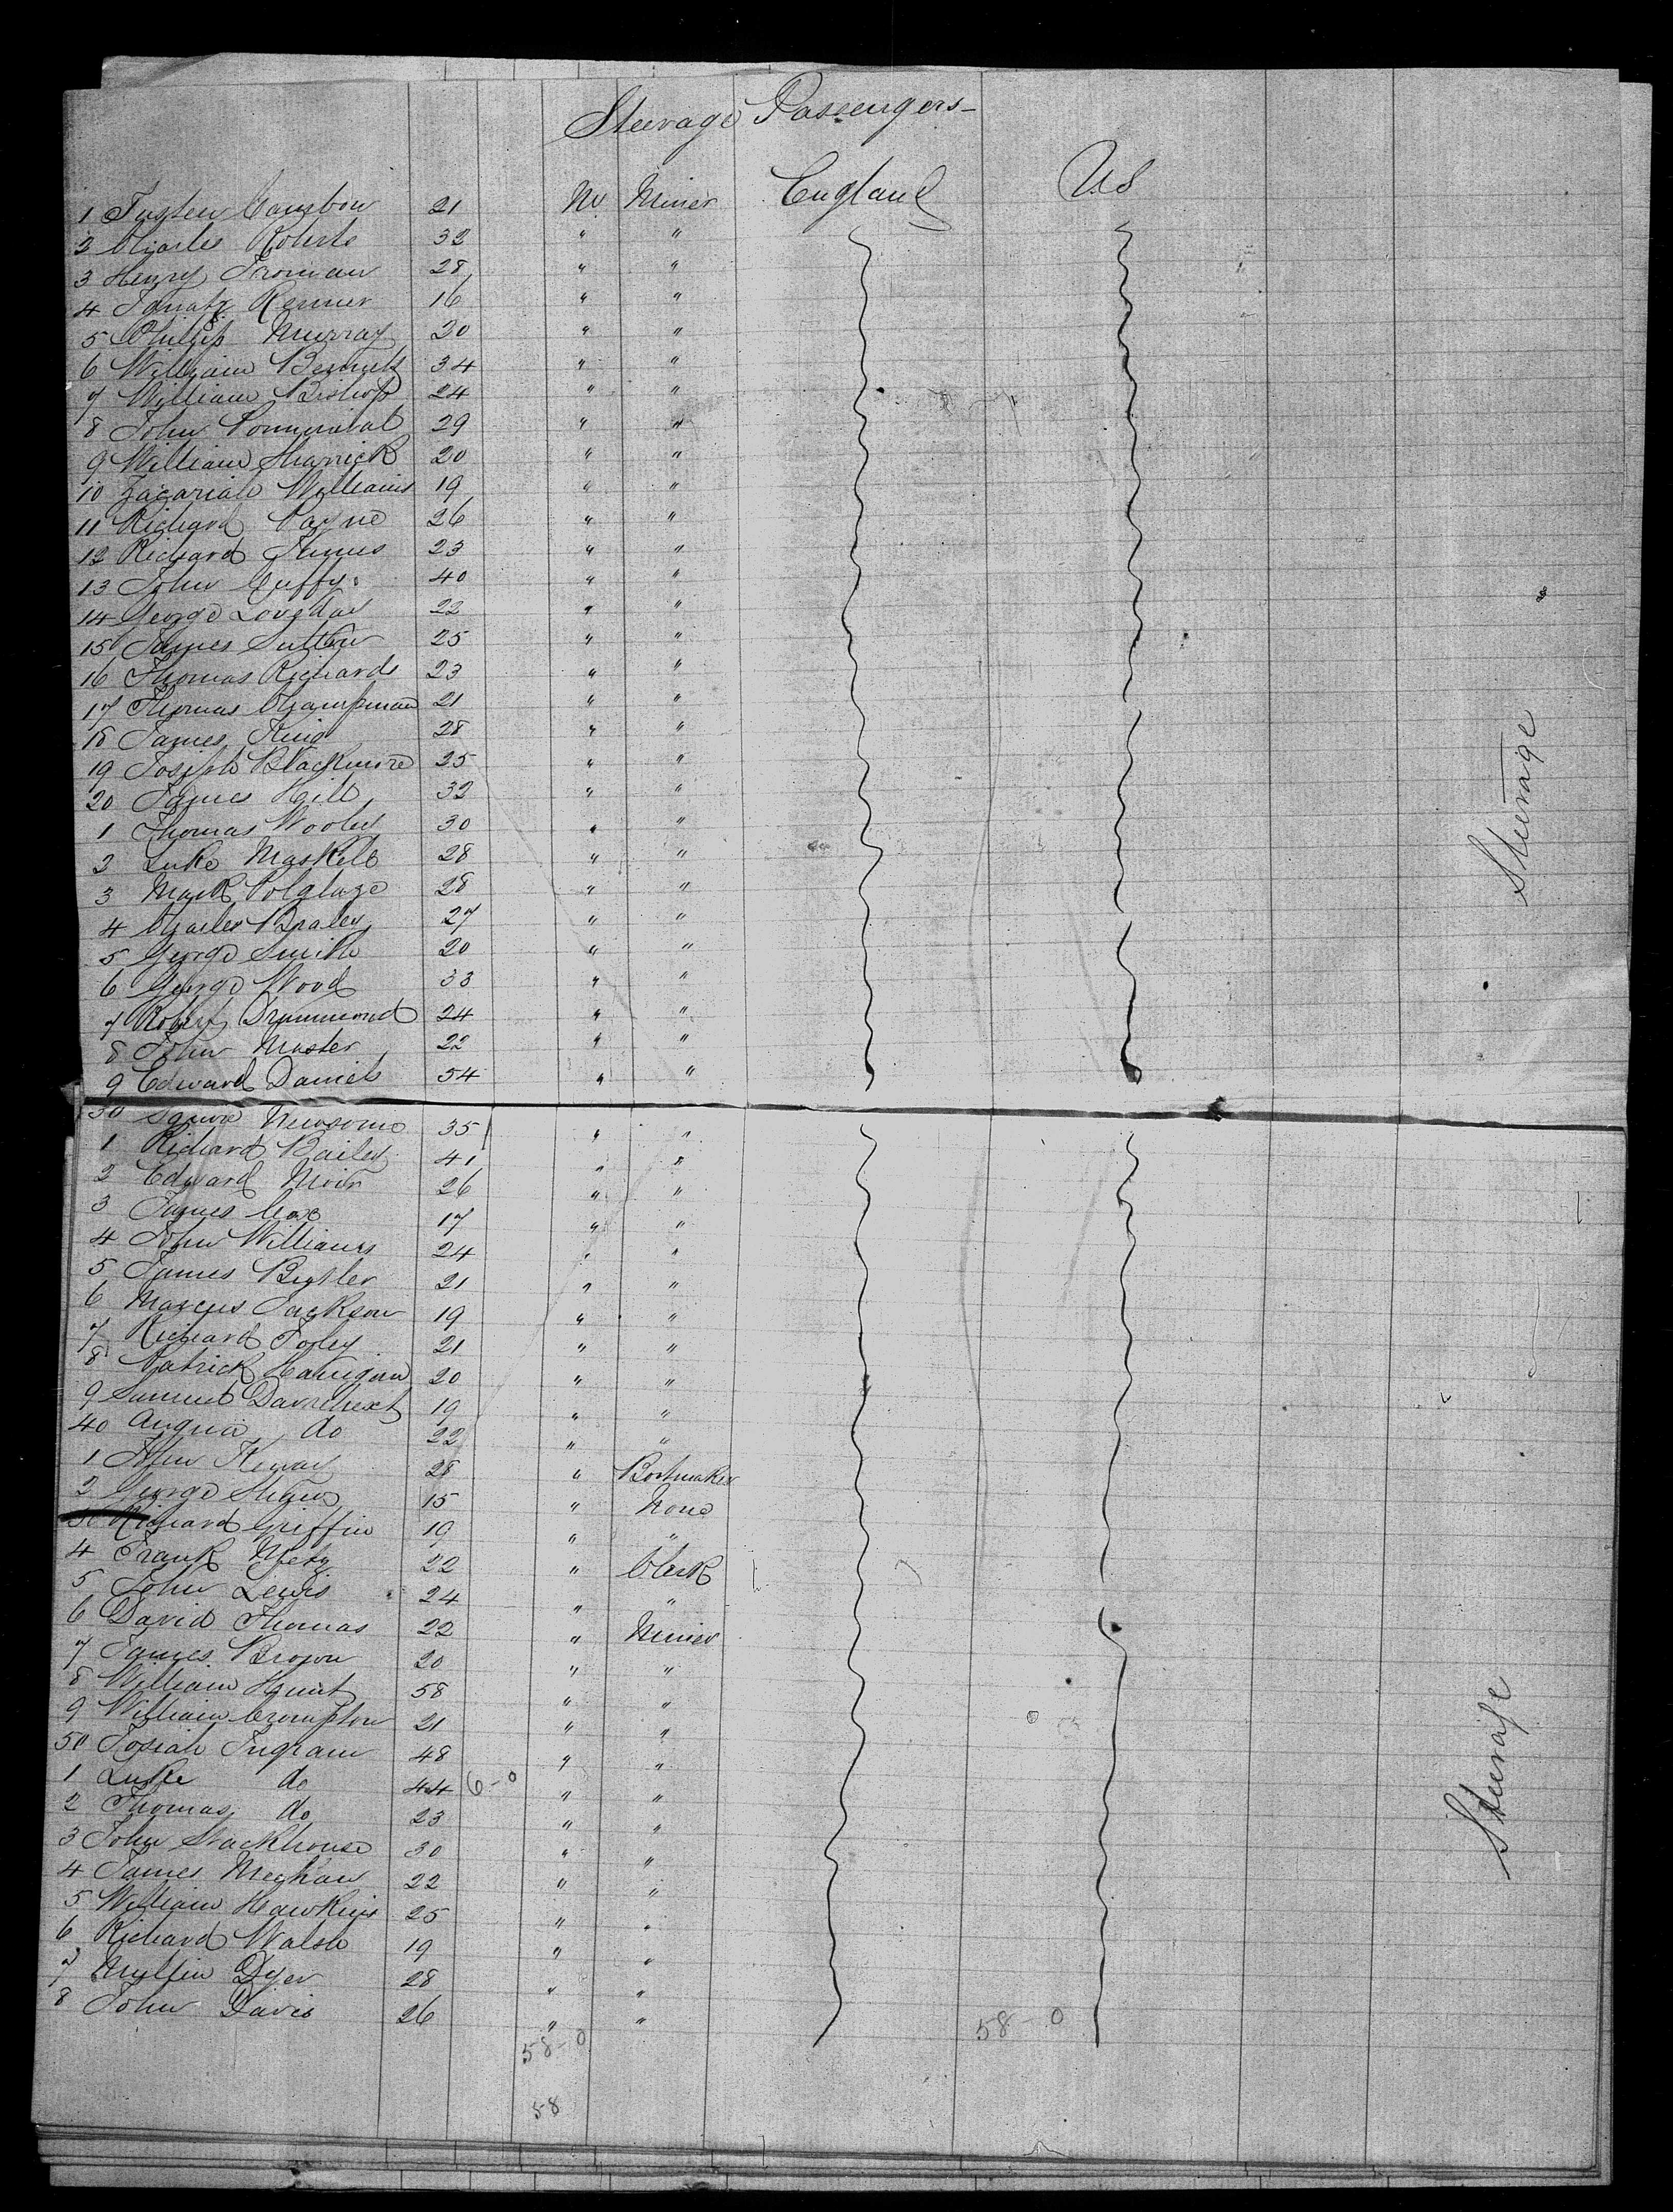 Steerage Passengers
England US
1 21 M Miner
2 Charles Roberts 32 " "
3 Henry Froman 28 " "
4 Ignatz Renner 16 " "
5 Philip Murray 20 " "
6 William Bennett 34 " "
7 William Bishop 24 " "
8 John 29 " "
9 William Sharrick 20 " "
10 Zacariah Williams 19 " "
11 Richard Payne 26 " "
12 Richard James 23 " "
13 John Cuffy 40 " "
14 George 22 " "
15 James Sutton 25 " "
16 Thomas Richards 23 " "
17 Thomas Champman 21 " "
18 James King 28 " "
19 Joseph Blackmore 25 " "
20 James Hill 32 " "
1 Thomas Wooley 30 " "
2 Luke Maskell 28 " "
3 Mark Polglaze 28 " "
4 Charles Braley 27 " "
5 George Smith 20 " "
6 George Wood 33 " "
7 Robert Drummond 24 " "
8 John Master 22 " "
9 Edward Daniels 54 " "
30 Newsome 35 " "
1 Richard Bailey 41 " "
2 Edward Moir 26 " "
3 James Cox 17 " "
4 John Williams 24 " "
5 James 21 " "
6 Marcus Jackson 19 " "
7 Richard Foley 21 " "
8 Patrick Hanigan 20 " "
9 Samuel 19 " "
40 do 22 " "
1 John 28 " Bootmaker
2 George 15 " None
3 Richard Griffin 19 " "
4 Frank 22 " Clerk
5 John Lewis 24 " "
6 David Thomas 22 " Miner
7 James Brown 20 " "
8 William Hunt 58 " "
9 William Crompton 21 " "
50 Josiah Ingram 48 " "
1 Luke do 44 6-0 " "
2 Thomas do 23 " "
3 John Stackhouse 30 " "
4 James Meehan 22 " "
5 William Hawkins 25 " "
6 Richard Walsh 19 " "
7 Dyer 28 " "
8 John Davis 26 " "
58-0 58-0
58
Steerage
Steerage